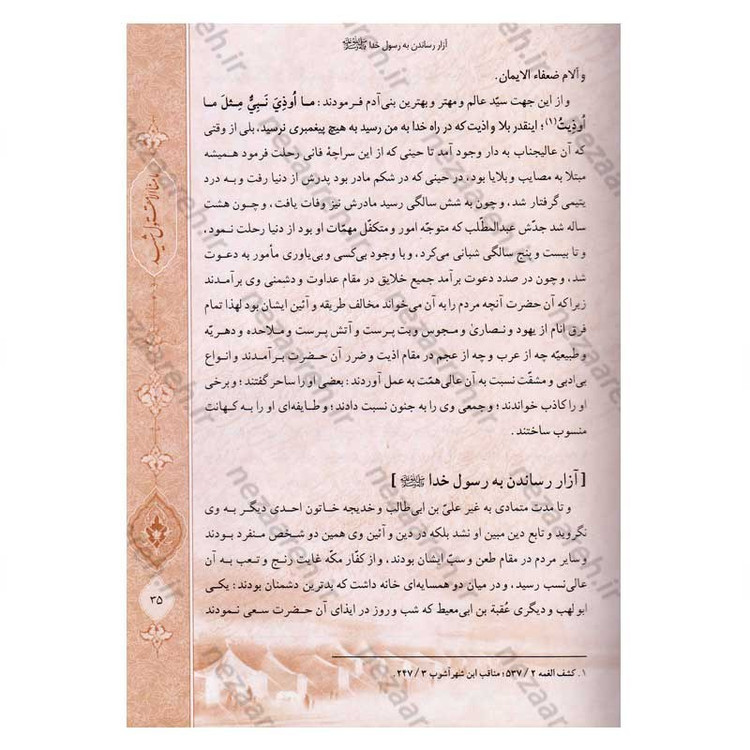 آزار رساندن به رسول خدا ﷺ
و آلام ضعفاء الایمان.
و از این جهت سیّد عالم و مهتر و بهترین بنی‌آدم فرمودند: ما اُوذِيَ نَبِيٌّ مِثلَ ما
اُوذِيتُ(۱)؛ اینقدر بلا و اذیت که در راه خدا به من رسید به هیچ پیغمبری نرسید، بلی از وقتی
که آن عالیجناب به دار وجود آمد تا حینی که از این سراچهٔ فانی رحلت فرمود همیشه
مبتلا به مصایب و بلایا بود، در حینی که در شکم مادر بود پدرش از دنیا رفت و به درد
یتیمی گرفتار شد، و چون به شش سالگی رسید مادرش نیز وفات یافت، و چون هشت
ساله شد جدّش عبدالمطّلب که متوجّه امور و متکفّل مهمّات او بود از دنیا رحلت نمود،
و تا بیست و پنج سالگی شبانی می‌کرد، و با وجود بی‌کسی و بی‌یاوری مأمور به دعوت
شد، و چون در صدد دعوت برآمد جمیع خلایق در مقام عداوت و دشمنی وی برآمدند
زیرا که آن حضرت آنچه مردم را به آن می‌خواند مخالف طریقه و آئین ایشان بود لهذا تمام
فرق انام از یهود و نصاریٰ و مجوس و بت پرست و آتش پرست و ملاحده و دهریّه
و طبیعیّه چه از عرب و چه از عجم در مقام اذیت و ضرر آن حضرت برآمدند و انواع
بی‌ادبی و مشقّت نسبت به آن عالی‌همّت به عمل آوردند: بعضی او را ساحر گفتند؛ و برخی
او را کاذب خواندند؛ و جمعی وی را به جنون نسبت دادند؛ و طایفه‌ای او را به کهانت
منسوب ساختند.
[ آزار رساندن به رسول خدا ﷺ ]
و تا مدت متمادی به غیر علیّ بن ابی‌طالب و خدیجه خاتون احدی دیگر به وی
نگروید و تابع دین مبین او نشد بلکه در دین و آئین وی همین دو شخص منفرد بودند
و سایر مردم در مقام طعن و سبّ ایشان بودند، و از کفار مکّه غایت رنج و تعب به آن
عالی‌نسب رسید، و در میان دو همسایه‌ای خانه داشت که بدترین دشمنان بودند: یکی
ابو لهب و دیگری عُقبة بن ابی‌معیط که شب و روز در ایذای آن حضرت سعی نمودند
۱. کشف الغمه ۲ / ۵۳۷؛ مناقب ابن شهر آشوب ۳ / ۲۴۷.
۳۵
nezaareh.ir